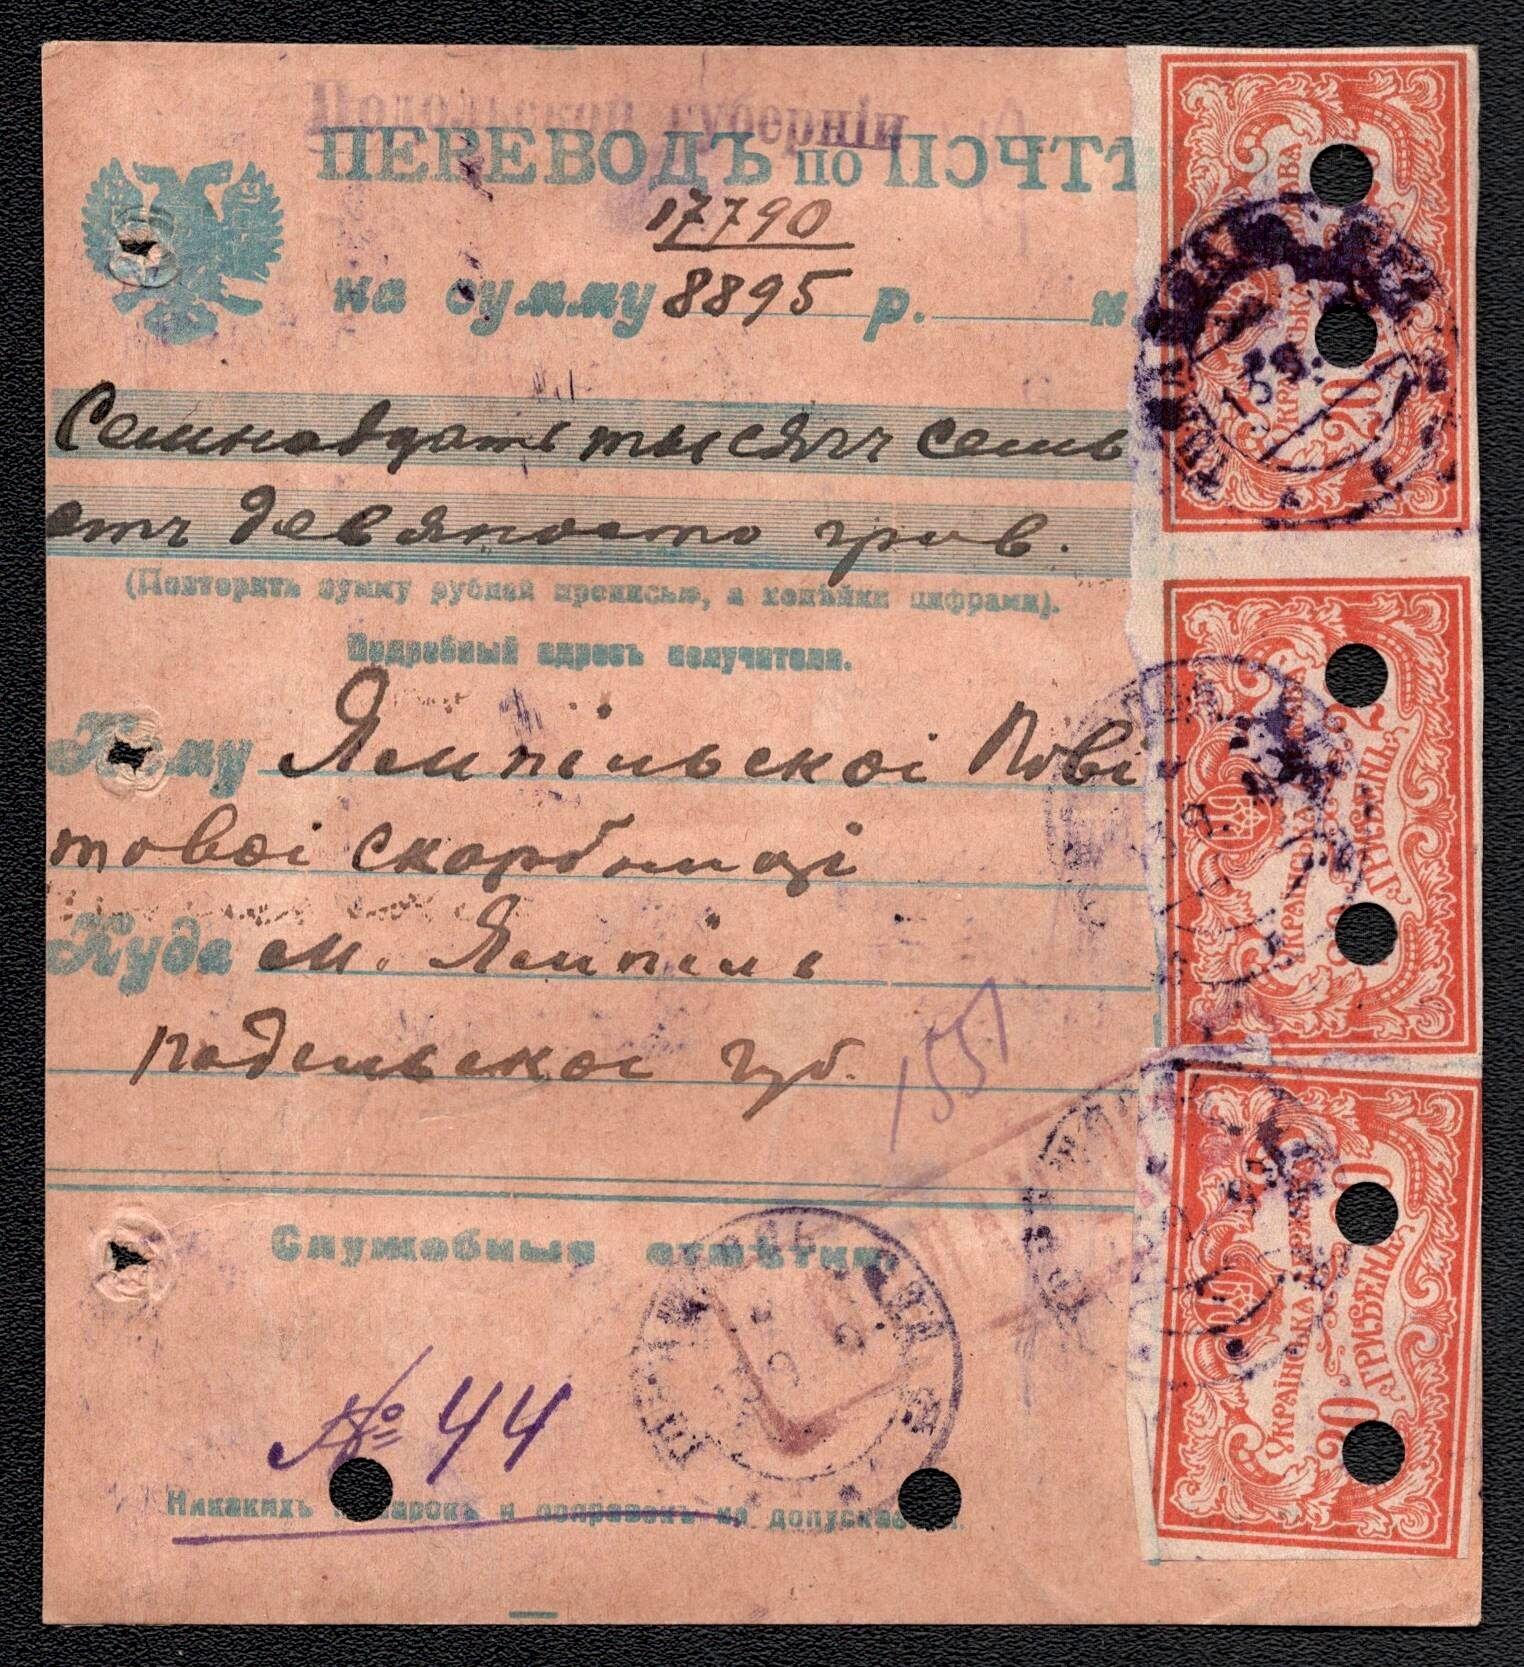 Подольской губерніи
ПЕРЕВОДЪ ПО ПОЧТѢ
17790
на сумму 8895 р. к.
Семнадцать тысячъ семь
сотъ девяносто грив.
(Повторить сумму рублей прописью, а копѣйки цифрами).
Подробный адресъ получателя.
Кому Ямпільскоі Пові
товоі скарбниці
Куда м. Ямпіль
Подільскоі губ.
1551
Служебныя отмѣтки.
№ 44
Никакихъ помарокъ и поправокъ не допускается.
УКРАЇНСЬКА ДЕРЖАВА
20 20
УКРАЇНСЬКА ДЕРЖАВА
20 20
ГРИВЕНЬ
УКРАЇНСЬКА ДЕРЖАВА
20 20
ГРИВЕНЬ